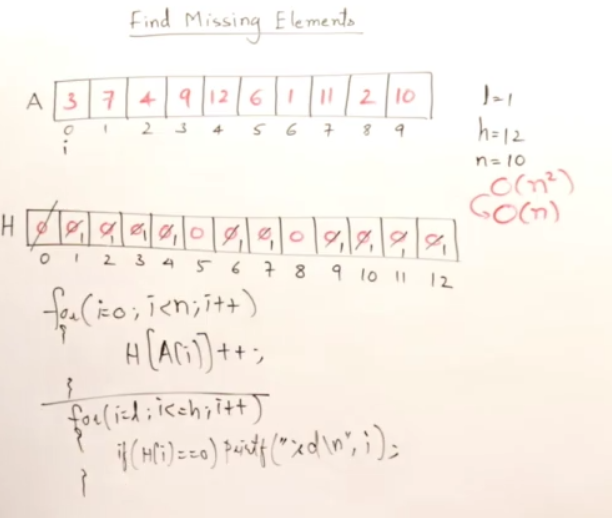 Find Missing Elements
A 3 7 4 9 12 6 1 11 2 10
0 1 2 3 4 5 6 7 8 9
i
l=1
h=12
n=10
O(n²)
O(n)
H 0 0 1 0 1 0 1 0 1 0 0 1 0 1 0 0 1 0 1 0 1 0 1
0 1 2 3 4 5 6 7 8 9 10 11 12
for(i=0; i<n; i++)
{
H[A[i]]++;
}
for(i=l; i<=h; i++)
{
if(H[i]==0) printf("%d\n", i);
}